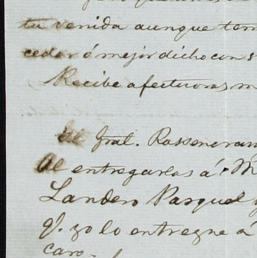 tu venida aunque tem
ceder ó mejor dicho con s
Recibe afectuosas m
El Gral. Rassenean
al entregarlas á M
Landero Pasquel y
q. yo lo entregue á
caro